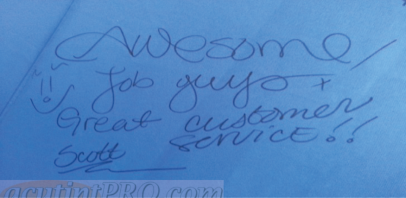 Awesome,
Job guys +
Great customer
SERVICE!!
Scott
acutintPRO.com